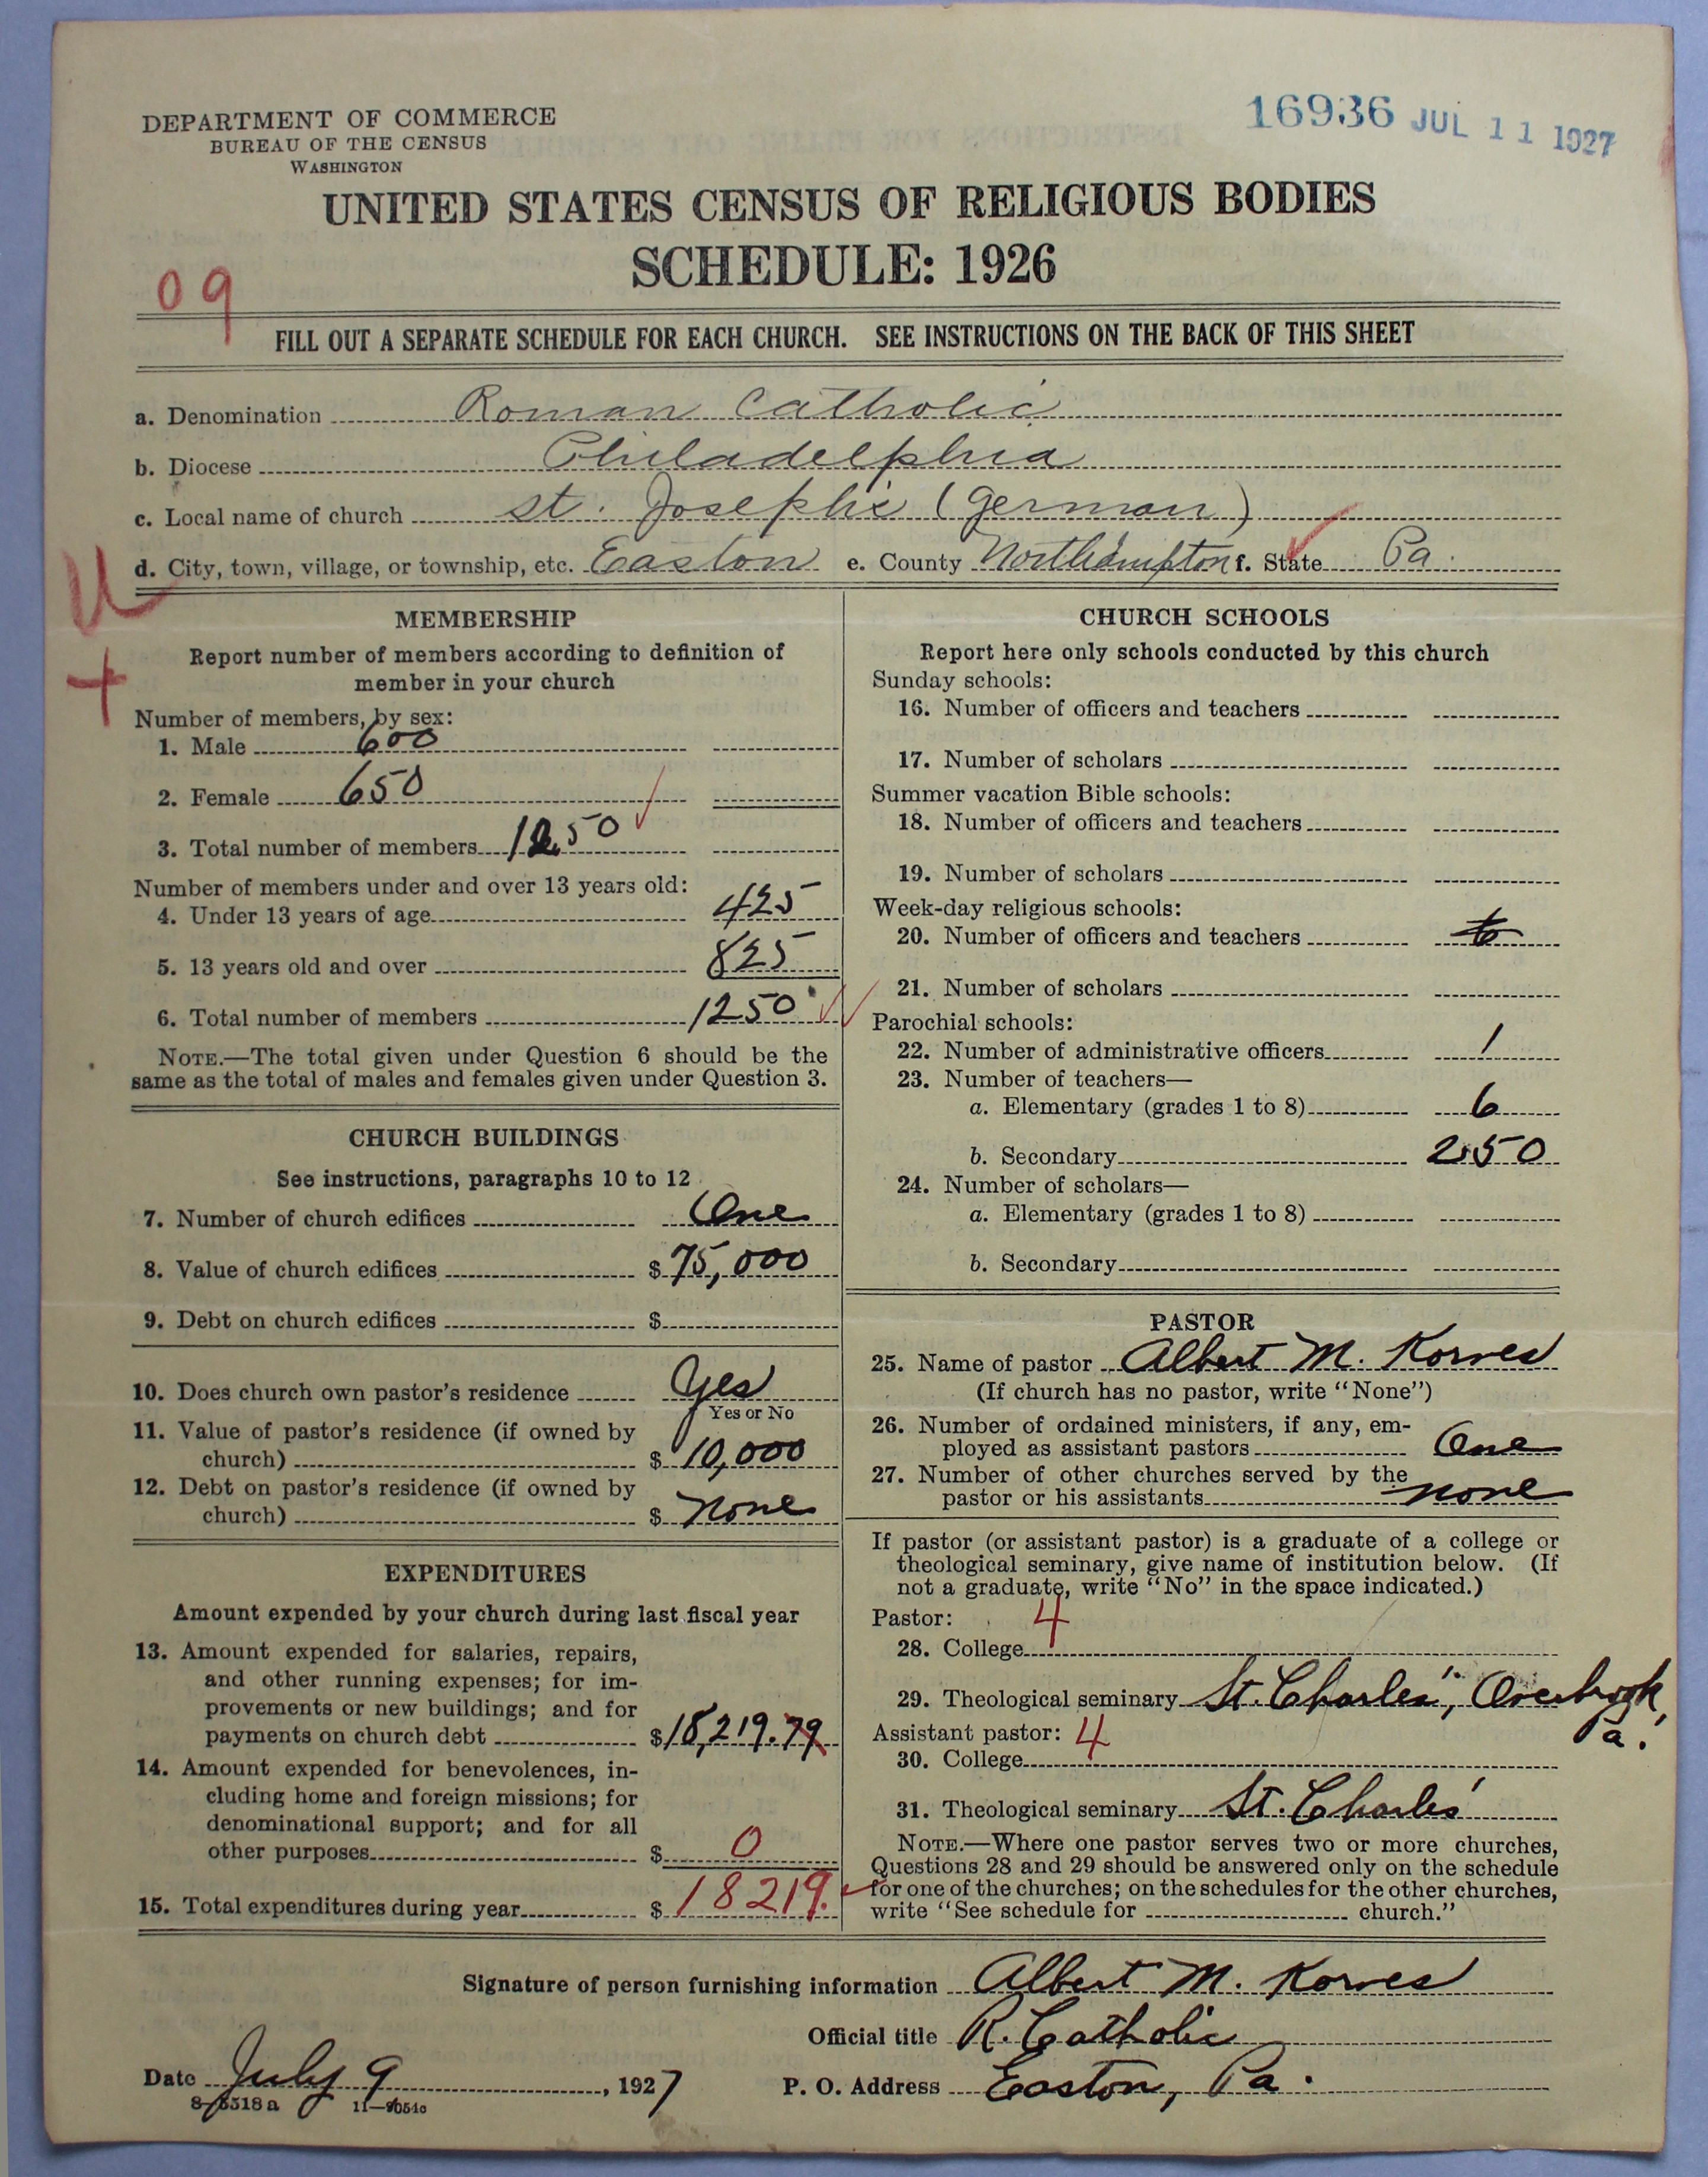 16936 JUL 11 1927
DEPARTMENT OF COMMERCE
BUREAU OF THE CENSUS
WASHINGTON
UNITED STATES CENSUS OF RELIGIOUS BODIES
SCHEDULE: 1926
09
FILL OUT A SEPARATE SCHEDULE FOR EACH CHURCH. SEE INSTRUCTIONS ON THE BACK OF THIS SHEET
a. Denomination Roman Catholic
b. Diocese Philadelphia
c. Local name of church St. Joseph's (German)
d. City, town, village, or township, etc. Easton e. County Northampton f. State Pa.
U
+
MEMBERSHIP
Report number of members according to definition of
member in your church
Number of members, by sex:
1. Male 600
2. Female 650
3. Total number of members 1250
Number of members under and over 13 years old:
4. Under 13 years of age 425
5. 13 years old and over 825
6. Total number of members 1250
NOTE.—The total given under Question 6 should be the
same as the total of males and females given under Question 3.
CHURCH BUILDINGS
See instructions, paragraphs 10 to 12
7. Number of church edifices One
8. Value of church edifices $ 75,000
9. Debt on church edifices $
10. Does church own pastor's residence Yes
Yes or No
11. Value of pastor's residence (if owned by
church) $ 10,000
12. Debt on pastor's residence (if owned by
church) $ none
EXPENDITURES
Amount expended by your church during last fiscal year
13. Amount expended for salaries, repairs,
and other running expenses; for im-
provements or new buildings; and for
payments on church debt $ 18,219.79
14. Amount expended for benevolences, in-
cluding home and foreign missions; for
denominational support; and for all
other purposes $ 0
15. Total expenditures during year $ 18219.
CHURCH SCHOOLS
Report here only schools conducted by this church
Sunday schools:
16. Number of officers and teachers
17. Number of scholars
Summer vacation Bible schools:
18. Number of officers and teachers
19. Number of scholars
Week-day religious schools:
20. Number of officers and teachers 6
21. Number of scholars
Parochial schools:
22. Number of administrative officers 1
23. Number of teachers—
a. Elementary (grades 1 to 8) 6
b. Secondary 250
24. Number of scholars—
a. Elementary (grades 1 to 8)
b. Secondary
PASTOR
25. Name of pastor Albert M. Korves
(If church has no pastor, write "None")
26. Number of ordained ministers, if any, em-
ployed as assistant pastors One
27. Number of other churches served by the
pastor or his assistants none
If pastor (or assistant pastor) is a graduate of a college or
theological seminary, give name of institution below. (If
not a graduate, write "No" in the space indicated.)
Pastor: 4
28. College
29. Theological seminary St. Charles', Overbrook,
Pa.
Assistant pastor: 4
30. College
31. Theological seminary St. Charles'
NOTE.—Where one pastor serves two or more churches,
Questions 28 and 29 should be answered only on the schedule
for one of the churches; on the schedules for the other churches,
write "See schedule for church."
Signature of person furnishing information Albert M. Korves
Official title R. Catholic
Date July 9, 1927 P. O. Address Easton, Pa.